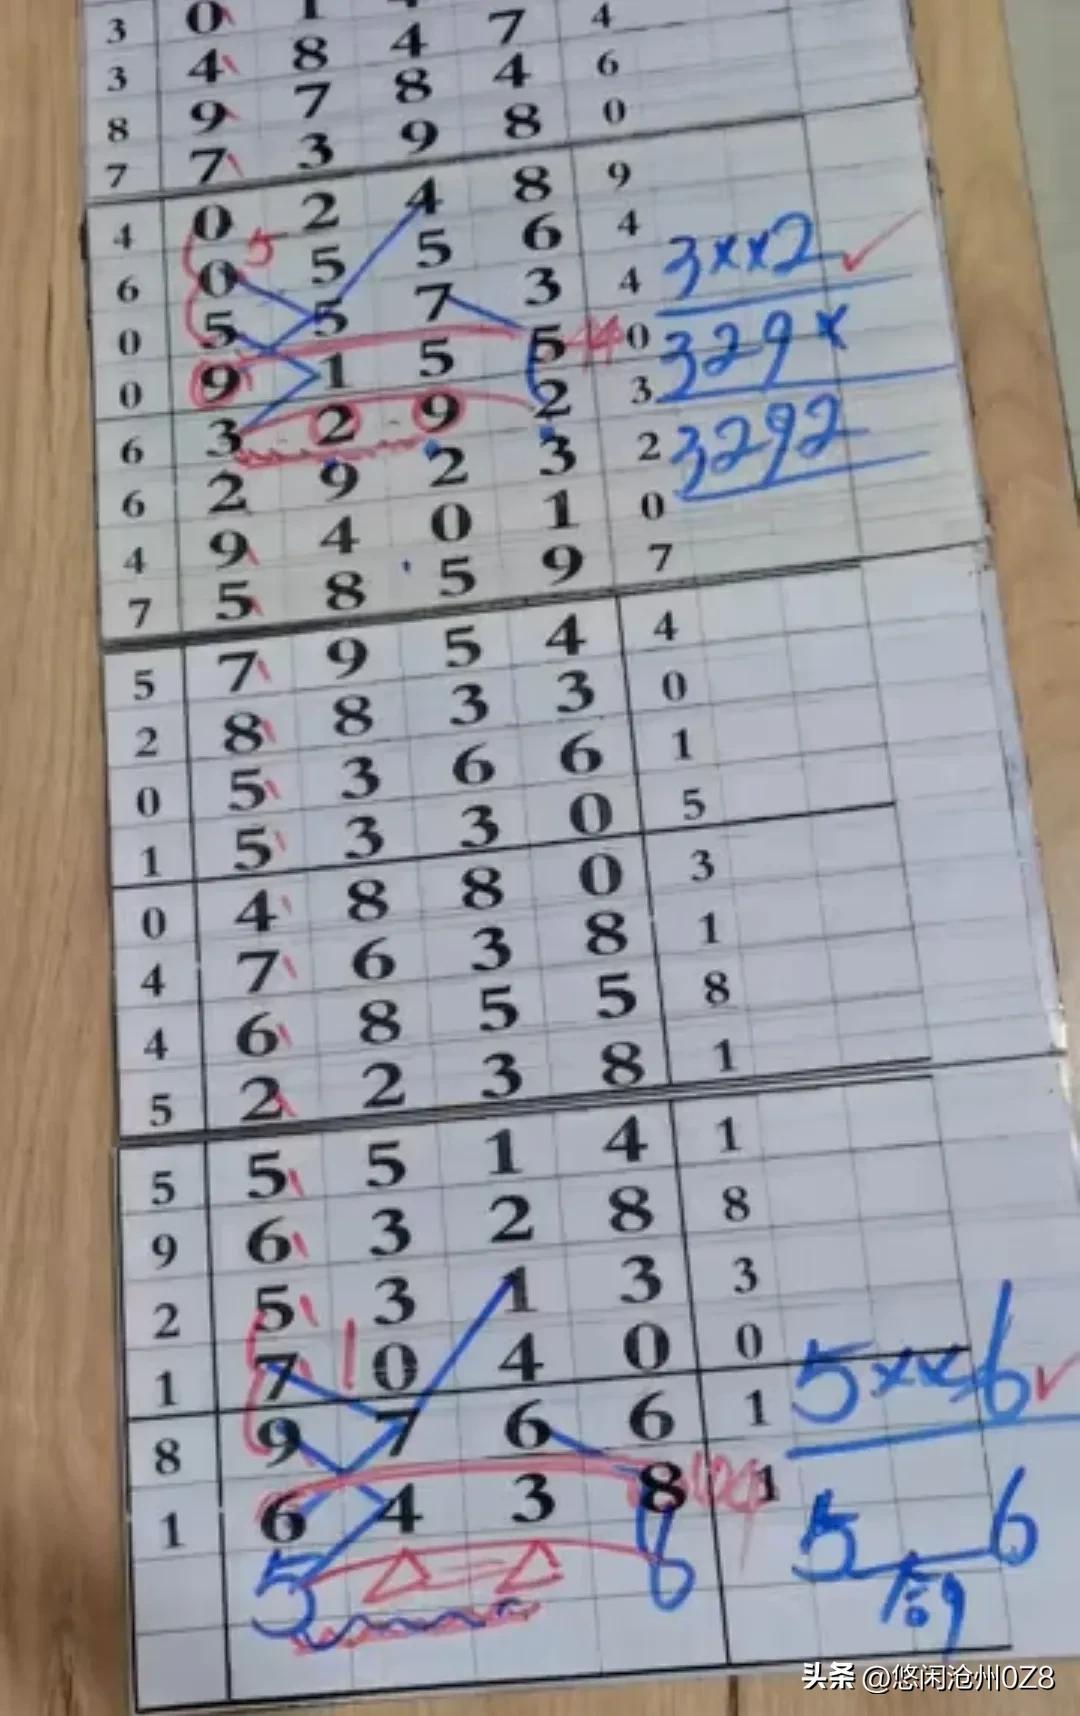 3 0 1
3 4 8 4 7 4
8 9 7 8 4 6
7 7 3 9 8 0
4 0 2 4 8 9
6 0 5 5 5 6 4
0 5 5 7 3 4 3××2
0 9 1 5 5 0 329×
6 3 2 9 2 3 3292
6 2 9 2 3 2
4 9 4 0 1 0
7 5 8 5 9 7
5 7 9 5 4 4
2 8 8 3 3 0
0 5 3 6 6 1
1 5 3 3 0 5
0 4 8 8 0 3
4 7 6 3 8 1
4 6 8 5 5 8
5 2 2 3 8 1
5 5 5 1 4 1
9 6 3 2 8 8
2 5 3 1 3 3
1 7 0 4 0 0
8 9 7 6 6 1 5××6
1 6 4 3 8 1
5 6 5 6
合9
头条 @悠闲沧州0Z8